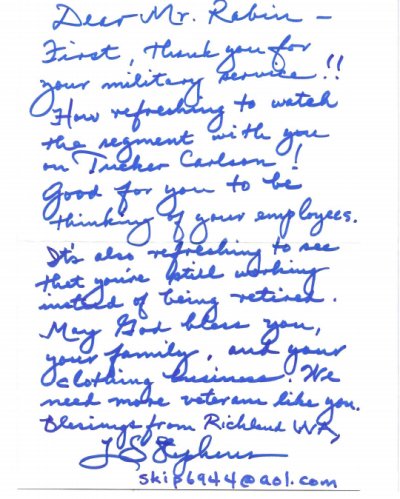 Dear Mr. Rabin —
First, thank you for
your military service!!
How refreshing to watch
the segment with you
on Tucker Carlson!
Good for you to be
thinking of your employees.
It's also refreshing to see
that you're still working
instead of being retired.
May God bless you,
your family, and your
clothing business. We
need more veterans like you.
Blessings from Richland WA,
skip6944@aol.com